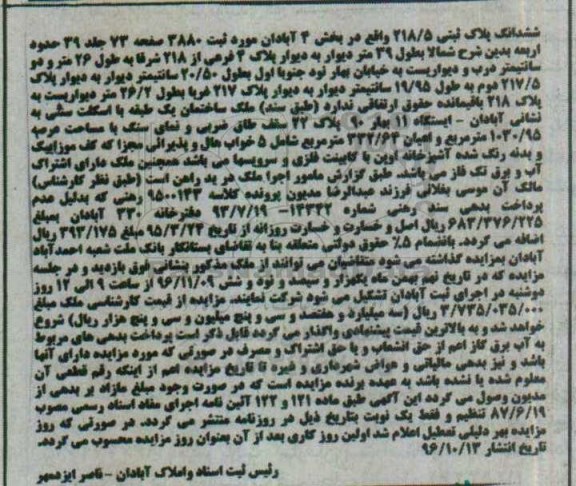 ششدانگ پلاک ثبتی ۲۱۸/۵ واقع در بخش ۴ آبادان مورد ثبت ۳۸۸۰ صفحه ۷۳ جلد ۳۹ حدود
اربعه بدین شرح شمالا بطول ۳۹ متر دیوار به دیوار پلاک ۴ فرعی از ۲۱۸ شرقا به طول ۲۶ متر و دو
سانتیمتر درب و دیواریست به خیابان بهار نود جنوبا اول بطول ۲۰/۵۰ سانتیمتر دیوار به دیوار پلاک
۲۱۷/۵ دوم به طول ۱۹/۹۵ سانتیمتر دیوار به دیوار پلاک ۲۱۷ غربا بطول ۲۶/۲ متر دیواریست به
پلاک ۲۱۸ باقیمانده حقوق ارتفاقی ندارد (طبق سند) ملک ساختمان یک طبقه با اسکلت سنتی به
نشانی آبادان - ایستگاه ۱۱ بهار ۹۰ پلاک ۲۲ سقف طاق ضربی و نمای سنگ با مساحت عرصه
۱۰۳۰/۹۵ مترمربع و اعیان ۳۳۲/۶۴ مترمربع شامل ۵ خواب هال و پذیرائی مجزا که کف موزاییک
و بدنه رنگ شده آشپزخانه اوپن با کابینت فلزی و سرویسها می باشد همچنین ملک دارای اشتراک
آب و برق تک فاز می باشد. طبق گزارش مامور اجرا ملک در ید راهن است (طبق نظر کارشناسی)
مالک آن موسی بغلانی فرزند عبدالرضا مدیون پرونده کلاسه ۹۵۰۰۱۳۳ رهنی که بدلیل عدم
پرداخت بدهی سند رهنی شماره ۱۳۳۳۲- ۹۳/۷/۱۹ دفترخانه ۳۳۰ آبادان بمبلغ
۶۸۳/۳۷۶/۲۲۵ ریال اصل و خسارت و خسارت روزانه از تاریخ ۹۵/۳/۲۴ مبلغ ۳۹۳/۱۷۵ ریال
اضافه می گردد. باانضمام ۵٪ حقوق دولتی متعلقه بنا به تقاضای بستانکار بانک ملت شعبه احمدآباد
آبادان بمزایده گذاشته می شود متقاضیان می توانند از ملک مذکور بنشانی فوق بازدید و در جلسه
مزایده که در تاریخ نهم بهمن ماه یکهزار و سیصد و نود و شش ۹۶/۱۱/۰۹ از ساعت ۹ الی ۱۲ روز
دوشنبه در اجرای ثبت آبادان تشکیل می شود شرکت نمایند. مزایده از قیمت کارشناسی ملک مبلغ
۳/۷۳۵/۰۳۵/۰۰۰ ریال (سه میلیارد و هفتصد و سی و پنج میلیون و سی و پنج هزار ریال) شروع
خواهد شد و به بالاترین قیمت پیشنهادی واگذار می گردد قابل ذکر است پرداخت بدهی های مربوط
به آب برق گاز اعم از حق انشعاب و یا حق اشتراک و مصرف در صورتی که مورد مزایده دارای آنها
باشد و نیز بدهی مالیاتی و عوارض شهرداری و غیره تا تاریخ مزایده اعم از اینکه رقم قطعی آن
معلوم شده یا نشده باشد به عهده برنده مزایده است که در صورت وجود مبلغ مازاد بر بدهی از
مدیون وصول می گردد این آگهی طبق ماده ۱۲۱ و ۱۲۲ آئین نامه اجرای مفاد اسناد رسمی مصوب
۸۷/۶/۱۹ تنظیم و فقط یک نوبت بتاریخ ذیل در روزنامه منتشر می گردد. در صورتی که روز
مزایده بهر دلیلی تعطیل اعلام شد اولین روز کاری بعد از آن بعنوان روز مزایده محسوب می گردد.
تاریخ انتشار ۹۶/۱۰/۱۳
رئیس ثبت اسناد واملاک آبادان - ناصر ایزدمهر